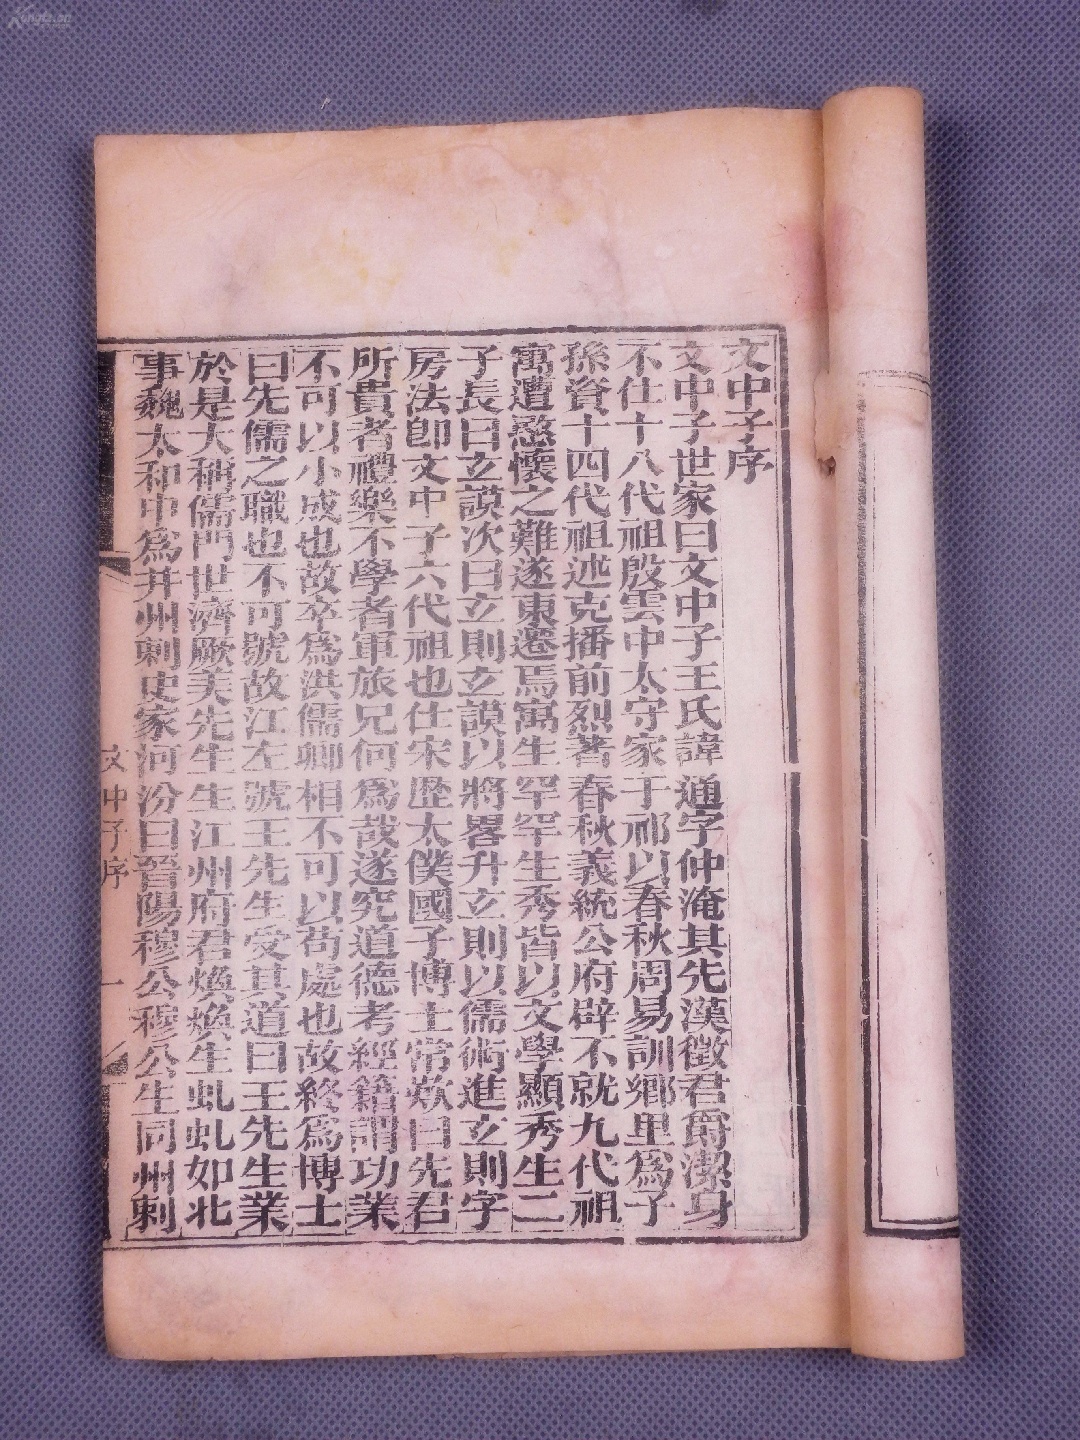 文中子序
文中子世家曰文中子王氏諱通字仲淹其先漢徵君爵潔身
不仕十八代祖殷雲中太守家于祁以春秋周易訓鄉里為子
孫資十四代祖述克播前烈著春秋義統公府辟不就九代祖
寓遭愍懷之難遂東遷焉寓生罕罕生秀皆以文學顯秀生二
子長曰立謨次曰立則立謨以將畧升立則以儒術進立則字
房法卽文中子六代祖也仕宋歷太僕國子博士常歎曰先君
所貴者禮樂不學者軍旅兄何為哉遂究道德考經籍謂功業
不可以小成也故卒為洪儒卿相不可以苟處也故終為博士
曰先儒之職也不可號故江左號王先生受其道曰王先生業
於是大稱儒門世濟厥美先生生江州府君煥煥生虬虬如北
事魏太和中為并州刺史家河汾曰晉陽穆公穆公生同州刺
文中子序
一
Kongfz.cn